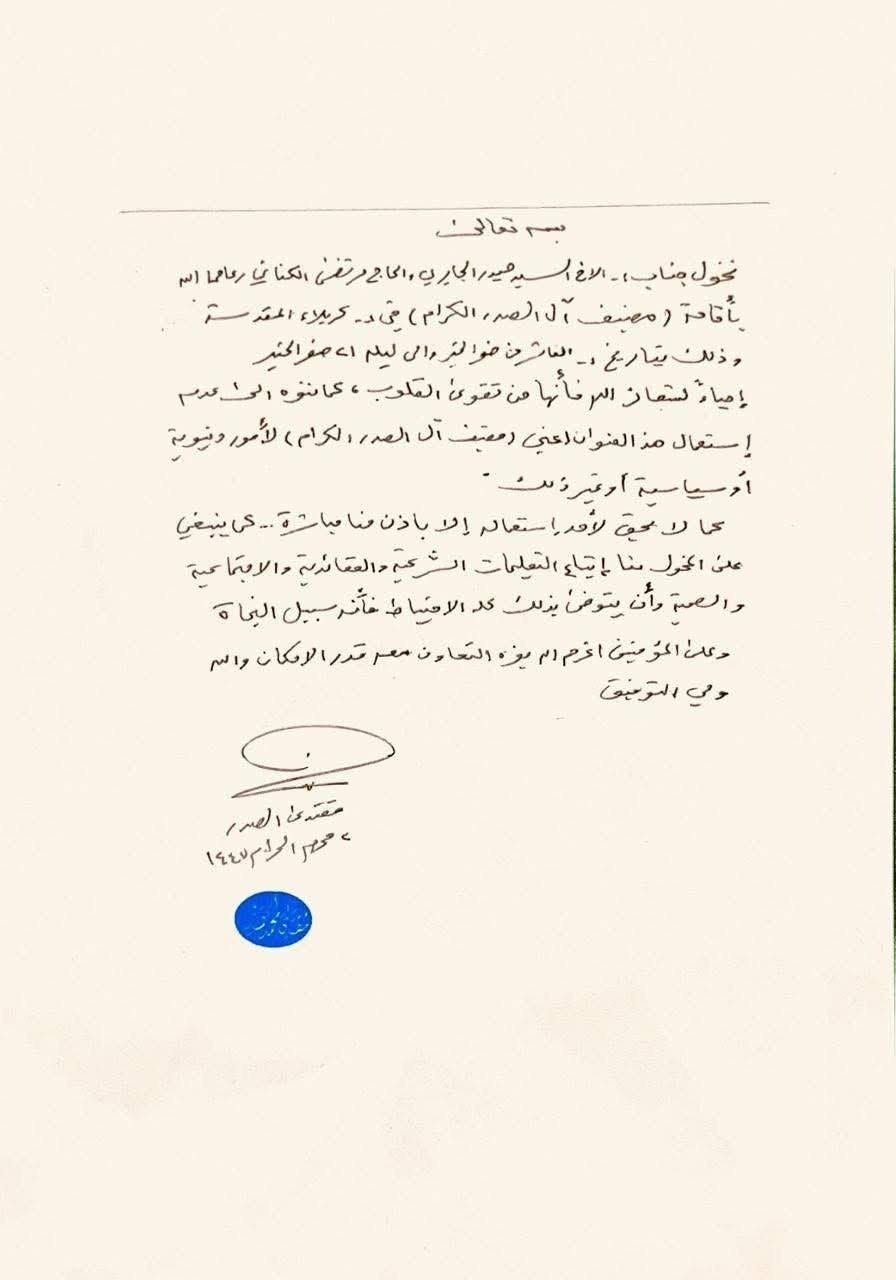 بسمه تعالى
نخول جناب :ـ الاخ السيد حيدر الجابري والحاج مرتضى الكناني رعاهما الله
بأقامة (مضيف آل الصدر الكرام) في :ـ كربلاء المقدسة
وذلك بتاريخ :ـ العاشر من والى ليلة ٢١ صفر الخير
إحياءً لشعائر الله فأنها من تقوى القلوب، كما ننوه الى عدم
إستعمال هذا العنوان اعني (مضيف آل الصدر الكرام) لأمور دنيوية
أو سياسية أو غير ذلك.
كما لا يحق لأحد إستعماله إلا باذن منا مباشرة .. كما ينبغي
على المخول منا إتباع التعليمات الشرعية والعقائدية والاجتماعية
والصحية وأن يتوخى بذلك الاحتياط فأنه سبيل النجاة
وعلى المؤمنين اعزهم الله التعاون معه قدر الامكان والله
ولي التوفيق
مقتدى الصدر
٢ محرم الحرام ١٤٤٧